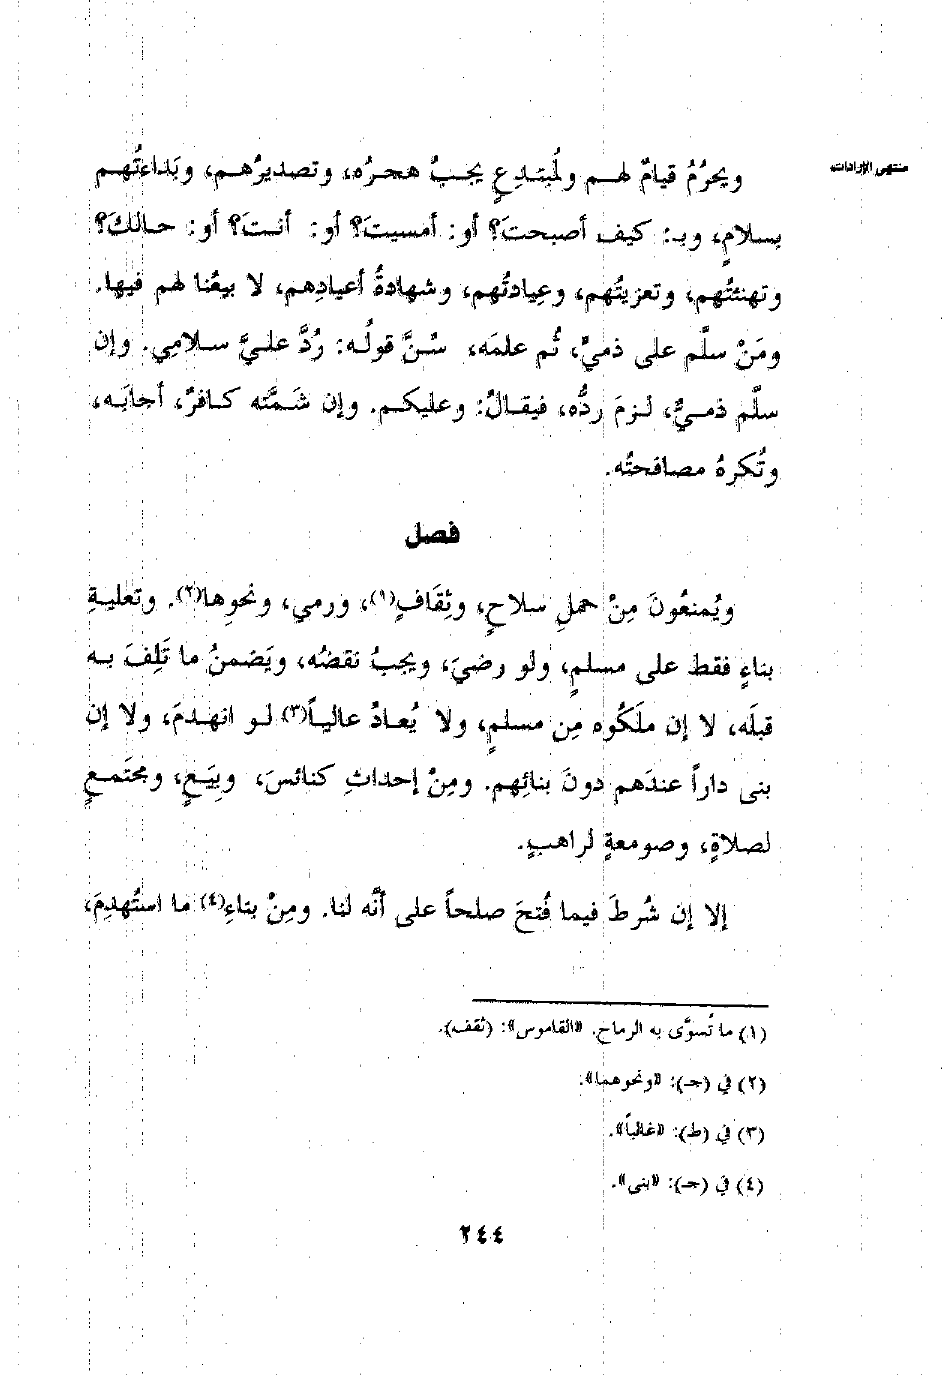 منتهى الإرادات
ويحرُمُ قيامٌ لهم ولمُبتدِعٍ يجبُ هجرُه، وتصديرُهم، وبَداءتُهم
بسلامٍ، وبـ: كيف أصبحتَ؟ أو: أمسيتَ؟ أو: أنتَ؟ أو: حالُكَ؟
وتهنئتُهم، وتعزيتُهم، وعِيادتُهم، وشهادةُ أعيادِهم، لا بيعُنا لهم فيها.
ومَنْ سلَّم على ذميٍّ، ثُم علمَه، سُنَّ قولُه: رُدَّ عليَّ سلامِي. وإن
سلَّم ذميٌّ، لزمَ ردُّه، فيقالُ: وعليكم. وإن شَمَّته كافرٌ، أجابَه،
وتُكرهُ مصافحتُه.
فصل
ويُمنعُونَ مِنْ حملِ سلاحٍ، وثِقَافٍ(١)، ورمي، ونحوِها(٢). وتعليةِ
بناءٍ فقط على مسلمٍ، ولو رضيَ، ويجبُ نقضُه، ويَضمنُ ما تَلِفَ به
قبلَه، لا إن ملَكُوه مِن مسلمٍ، ولا يُعادُ عالياً(٣) لو انهدمَ، ولا إن
بنى داراً عندَهم دونَ بنائِهم. ومِنْ إحداثِ كنائسَ، وبِيَعٍ، ومجتَمعٍ
لصلاةٍ، وصومعةٍ لراهبٍ.
إلا إن شُرطَ فيما فُتحَ صلحاً على أنَّه لنا. ومِنْ بناءِ(٤) ما استُهدِمَ،
(١) ما تُسوَّى به الرماح. «القاموس»: (ثقف).
(٢) في (جـ): «ونحوهما».
(٣) في (ط): «غالباً».
(٤) في (جـ): «بنى».
٢٤٤